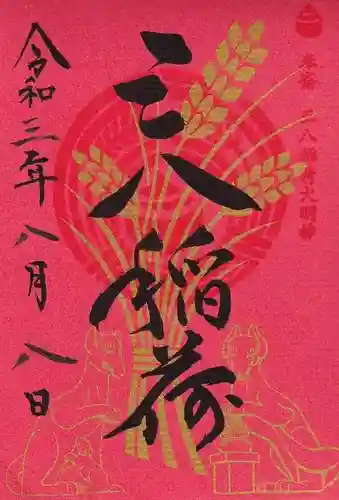 三八稲荷大明神
三八稲荷
令和三年八月八日